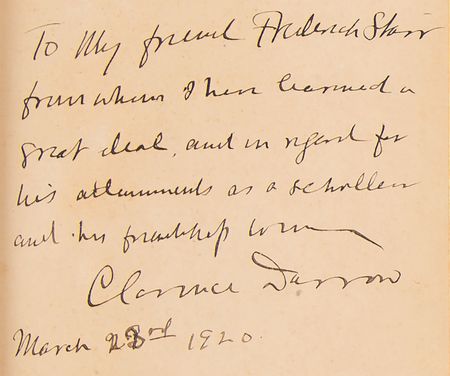 To My friend Frederick Starr
from whom I have learned a
great deal, and in regard for
his attainments as a scholar
and his friendship
Clarence Darrow
March 23rd 1920.